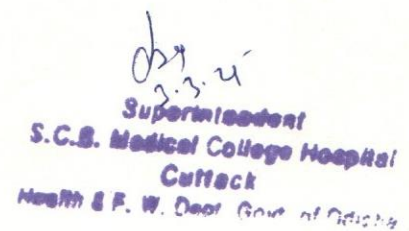 3.3.21
Superintendent
S.C.B. Medical College Hospital
Cuttack
Health & F. W. Dept. Govt. of Odisha